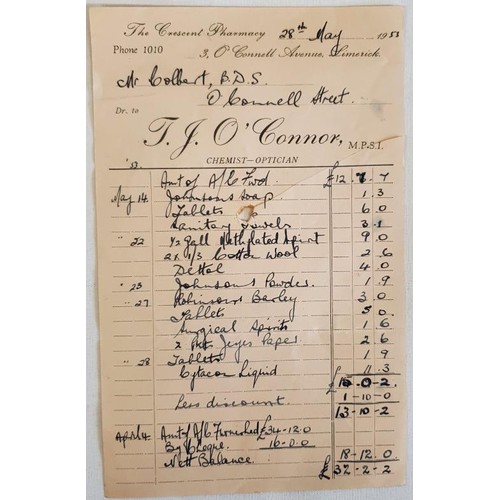 The Crescent Pharmacy 28th May 1953
Phone 1010 3, O'Connell Avenue, Limerick.
Mr Colbert, B.D.S.
O'Connell Street.
Dr. to
T. J. O'Connor, M.P.S.I.
CHEMIST—OPTICIAN
'53.
Amt of A/C Fwd. £12. 7. 7
May 14. Johnson's Soap 1. 3
Tablets 6. 0
Sanitary Towels 3. 1
" 22 ½ Gall Methylated Spirit 9. 0
2 x 1/3 Cotton Wool 2. 6
Dettol 4. 0
" 23 Johnson's Powder 1. 9
" 27 Robinsons Barley 3. 0
Tablets 5. 0
Surgical Spirits 1 6
2 Pkt Jeyes Paper 2 6
" 28 Tablets 1 9
Cytacon Liquid 11. 3
£ 15 0. 2.
Less discount. 1-10-0
13-10-2
April 14. Amt of A/C Furnished £34-12.0
By Cheque. 16-0.0
Nett Balance. 18-12.0
£ 32-2-2